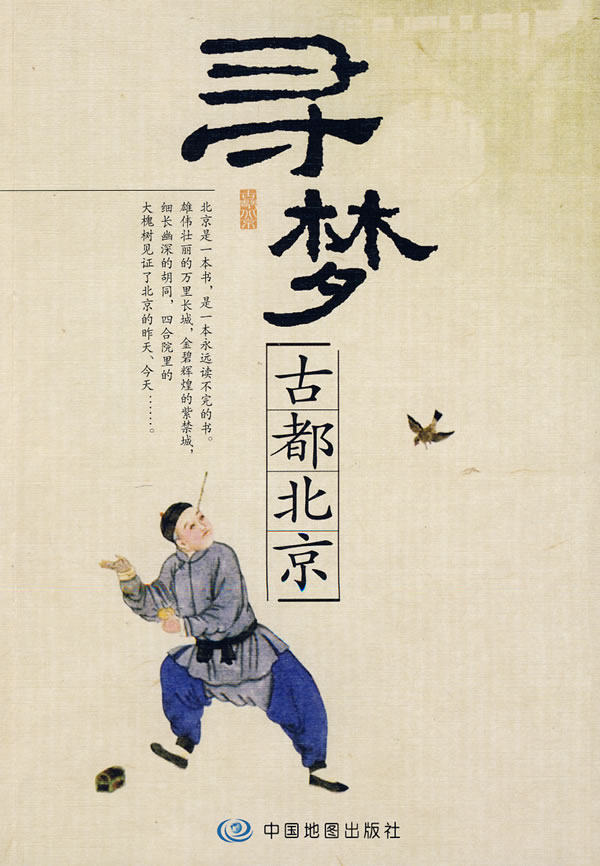 寻梦
古都北京
北京是一本书，是一本永远读不完的书。
雄伟壮丽的万里长城，金碧辉煌的紫禁城，
细长幽深的胡同，四合院里的
大槐树见证了北京的昨天、今天……。
中国地图出版社